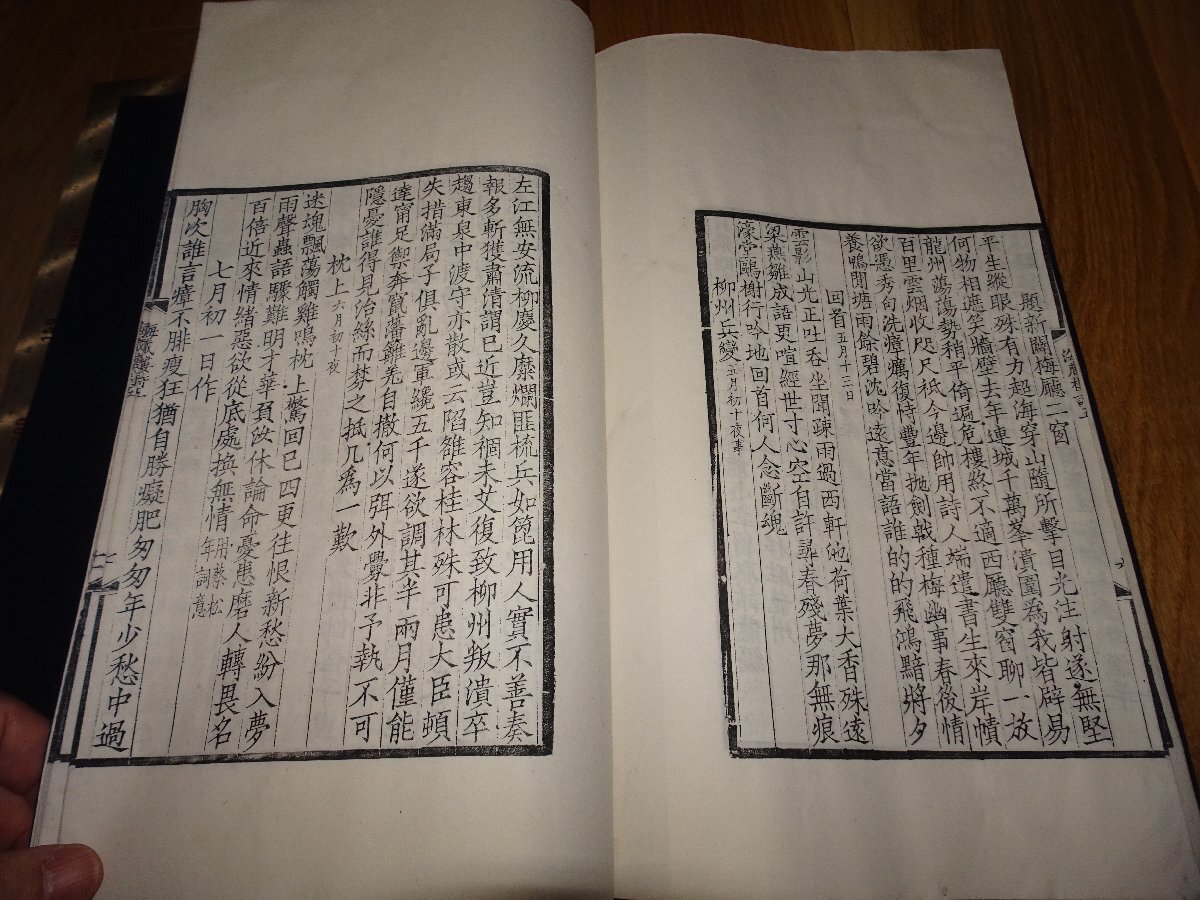 題新闢梅廳二窗
平生縱眼殊有力超海穿山隨所擊目光注射遂無堅
何物相應笑牆壁去年連城千萬峯潰圍為我皆辟易
龍州蕩蕩勢稍平倚遍危樓終不適西廳雙窗聊一放
百里雲烟收咫尺祇今邊帥用詩人端遣書生來岸幘
欲憑秀句洗瘴癘復恃豐年抛劍戟種梅幽事春後情
養鴨閒塘雨餘碧沈吟遠意當語誰的的飛鴻黯將夕
回首五月十三日
雲影山光正吐吞坐聞疎雨過西軒池荷葉大香殊遠
梁燕雛成語更喧經世寸心空自許尋春殘夢那無痕
濠堂鷗榭行吟地回首何人念斷魂
柳州兵變五月初十夜事
左江無安流柳慶久糜爛匪梳兵如篦用人實不善奏
報多斬獲肅清謂已近豈知稠未艾復致柳州叛潰卒
趨東泉中渡守亦散或云陷雒容桂林殊可患大臣頓
失措滿局子俱亂邊軍纔五千遂欲調其半兩月僅能
達甯足禦奔竄藩籬先自撤何以弭外釁非予孰不可
隱憂誰得見治絲而棼之抵几為一歎
枕上六月初十夜
迷魂飄蕩觸雞鳴枕上驚回已四更往恨新愁紛入夢
雨聲蟲語驟難明才華負汝休論命憂患磨人轉畏名
百倍近來情緒惡欲從底處換無情用蔡松年詞意
七月初一日作
胸次誰言瘴不腓瘦狂猶自勝癡肥匆匆年少愁中過